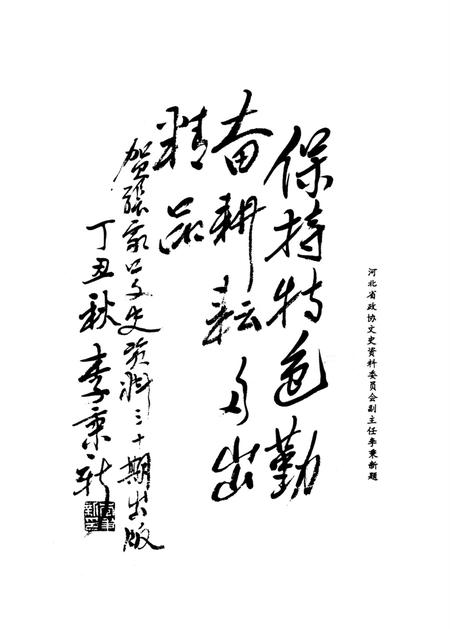 河北省政协文史资料委员会副主任李秉新题
保持特色勤
奋耕耘多出
精品
贺张家口文史资料三十期出版
丁丑秋李秉新